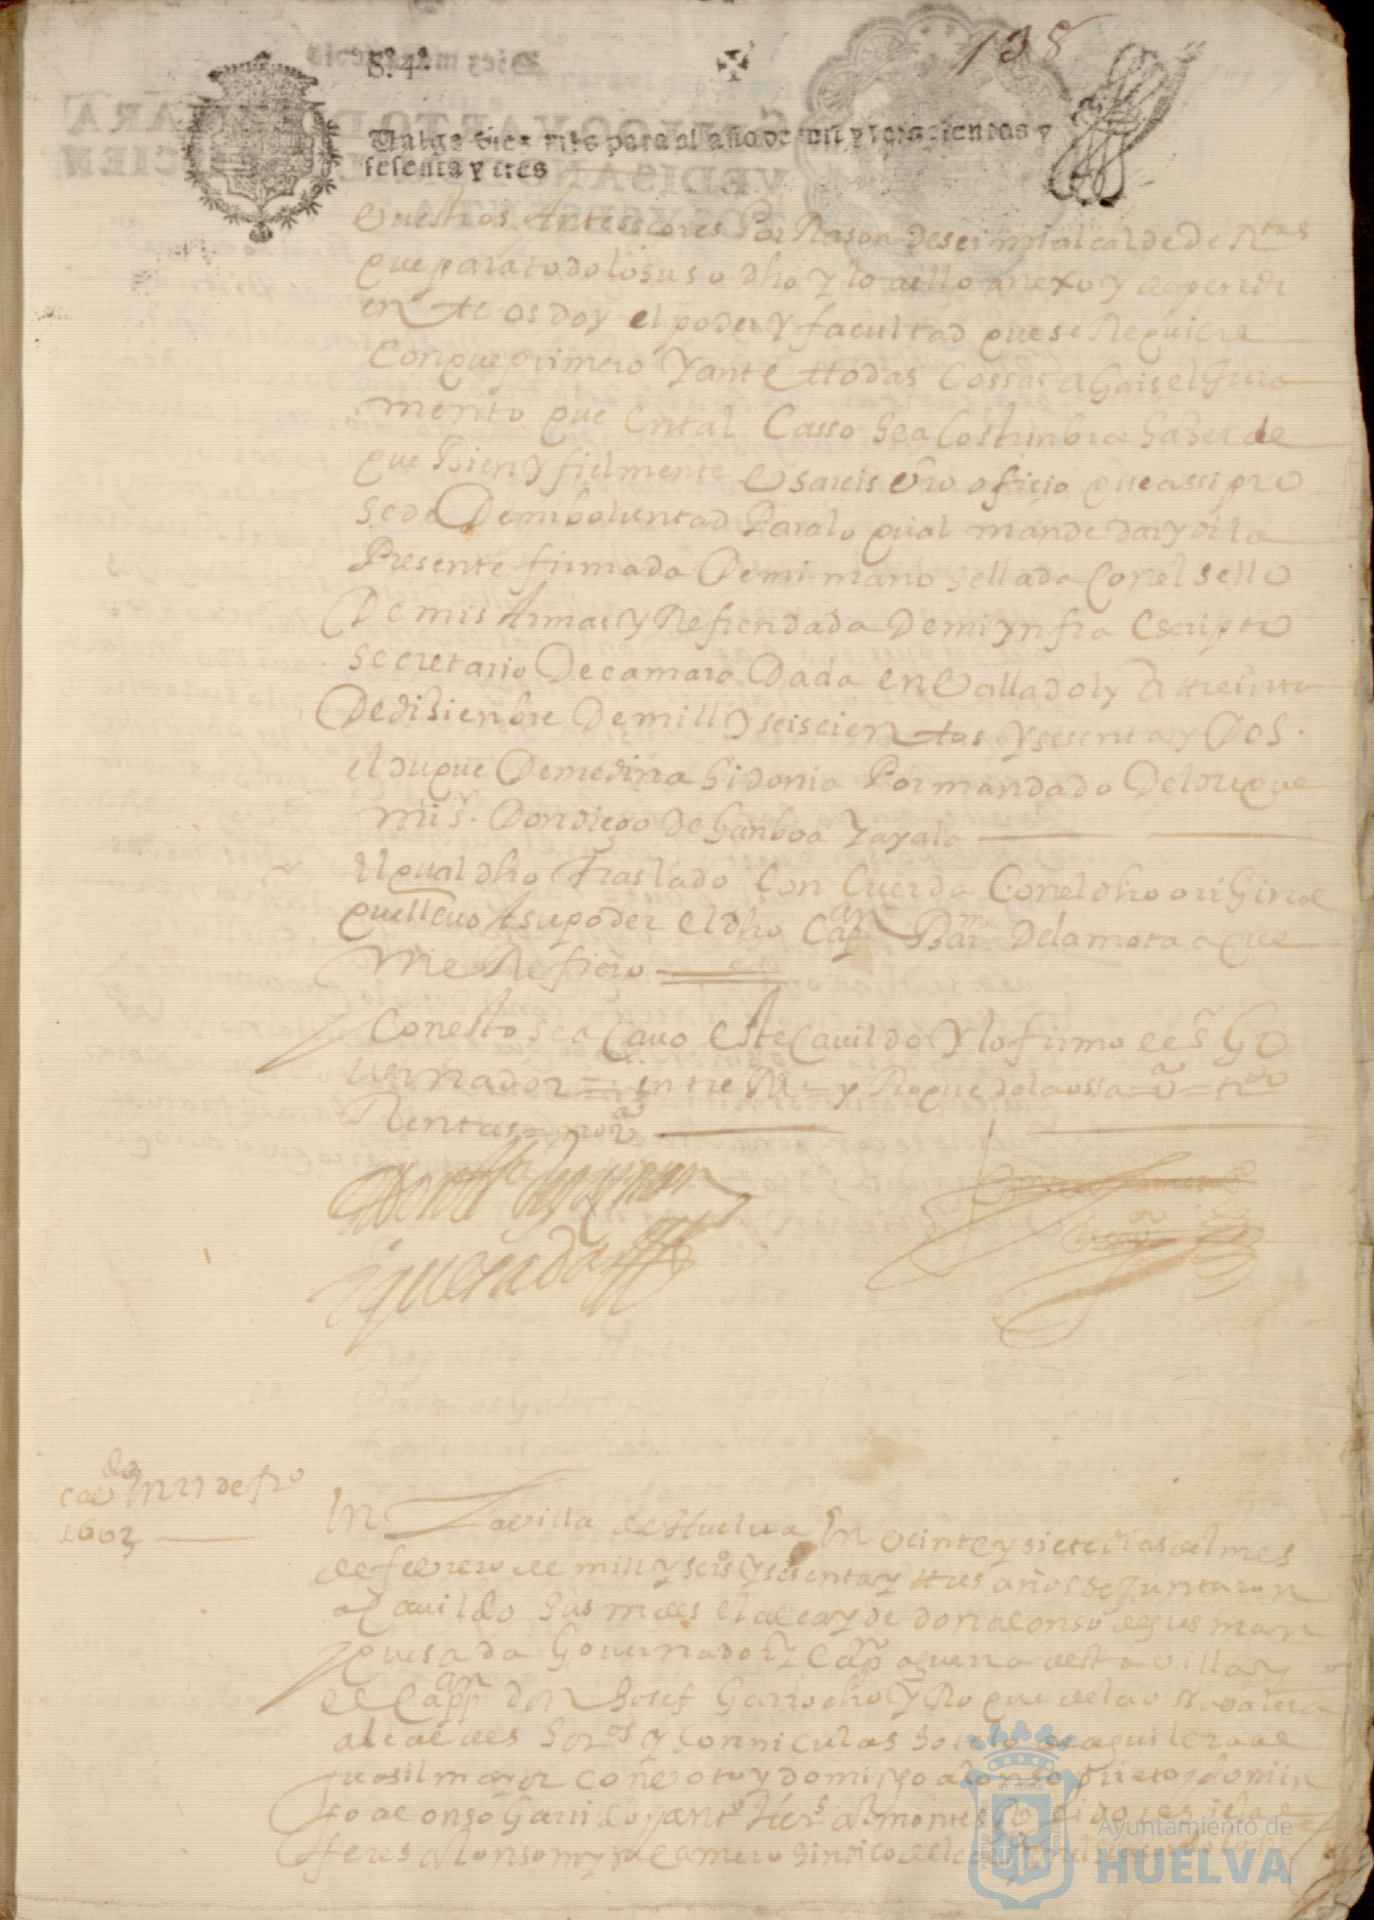 138
8º 4º
Valga diez mrs para el año de mil y seyscientos y
sesenta y tres
Vuestros Antesesores Por Rason de ser mi alcalde de Rtas
que para todo lo suso dho y lo a ello anexo y dependi
en te os doy el poder y facultad que se Requiere
Con que primero Y ante ttodas Cossas agais el Jura
mento que en tal Casso se a Costunbra haser de
que Bien y fielmente Usareis vro oficio que assi pro
sede De mi boluntad Para lo qual mande dar y di la
Presente firmada De mi mano sellada Con el sello
De mis Armas y Refrendada De mi ynfra escripto
secretario De camara Dada en Valladoly A treinta
De disienbre De mill y seiscien tos y sesenta y Dos.
el duque De medina sidonia Por mandado Del duque
mi sr. Don diego de ganboa Y ayala
El qual dho Traslado Con Cuerda Con el dho original
que llevo A su poder el dho Capan Barme De la mota a que
me Refiero
Con esto se a Cavo este Cavildo Y lo firmo el sr Go
vernador = entre R = y Roque de la ossa = va =
Rentas = no va
quesada
cavdo En 27 de fro
1663
En La villa de Huelva En veinte y siete dias del mes
de febrero de mill y seisos y sesenta y ttres años se Juntaron
a Cavildo sus mdes el alcayde don alonso de gusman
quesada Governador Y Capan a guerra desta villa y
el Cappan don Josef Garrocho Y Roque de la ossa
alcaldes Y Don niculas de aguilera al
guasil mayor con voto y domingo alonso prieto y domin
go alonso Garrido y anto Herns
feres Alonso camero sindico del
Ayuntamiento de
HUELVA